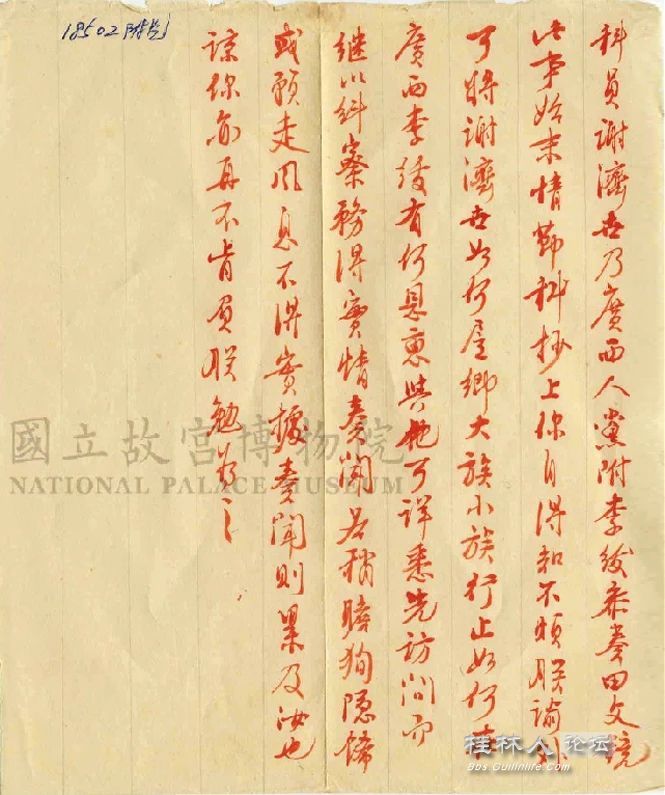 科員謝濟世乃廣西人黨附李紱參奏田文鏡
此事始末情節科抄上你自得知不煩朕諭
可將謝濟世如何居鄉大族小族行止如何在
廣西李紱有何恩惠與他可詳悉先訪問而
繼以糾察務得實情奏聞若稍瞻徇隱飾
或走風息不得實據奏聞則累及汝也
諒你亦再不肯負朕勉為之
18502附
國立故宮博物院
NATIONAL PALACE MUSEUM
桂林人论坛
Bbs.Guilinlife.com